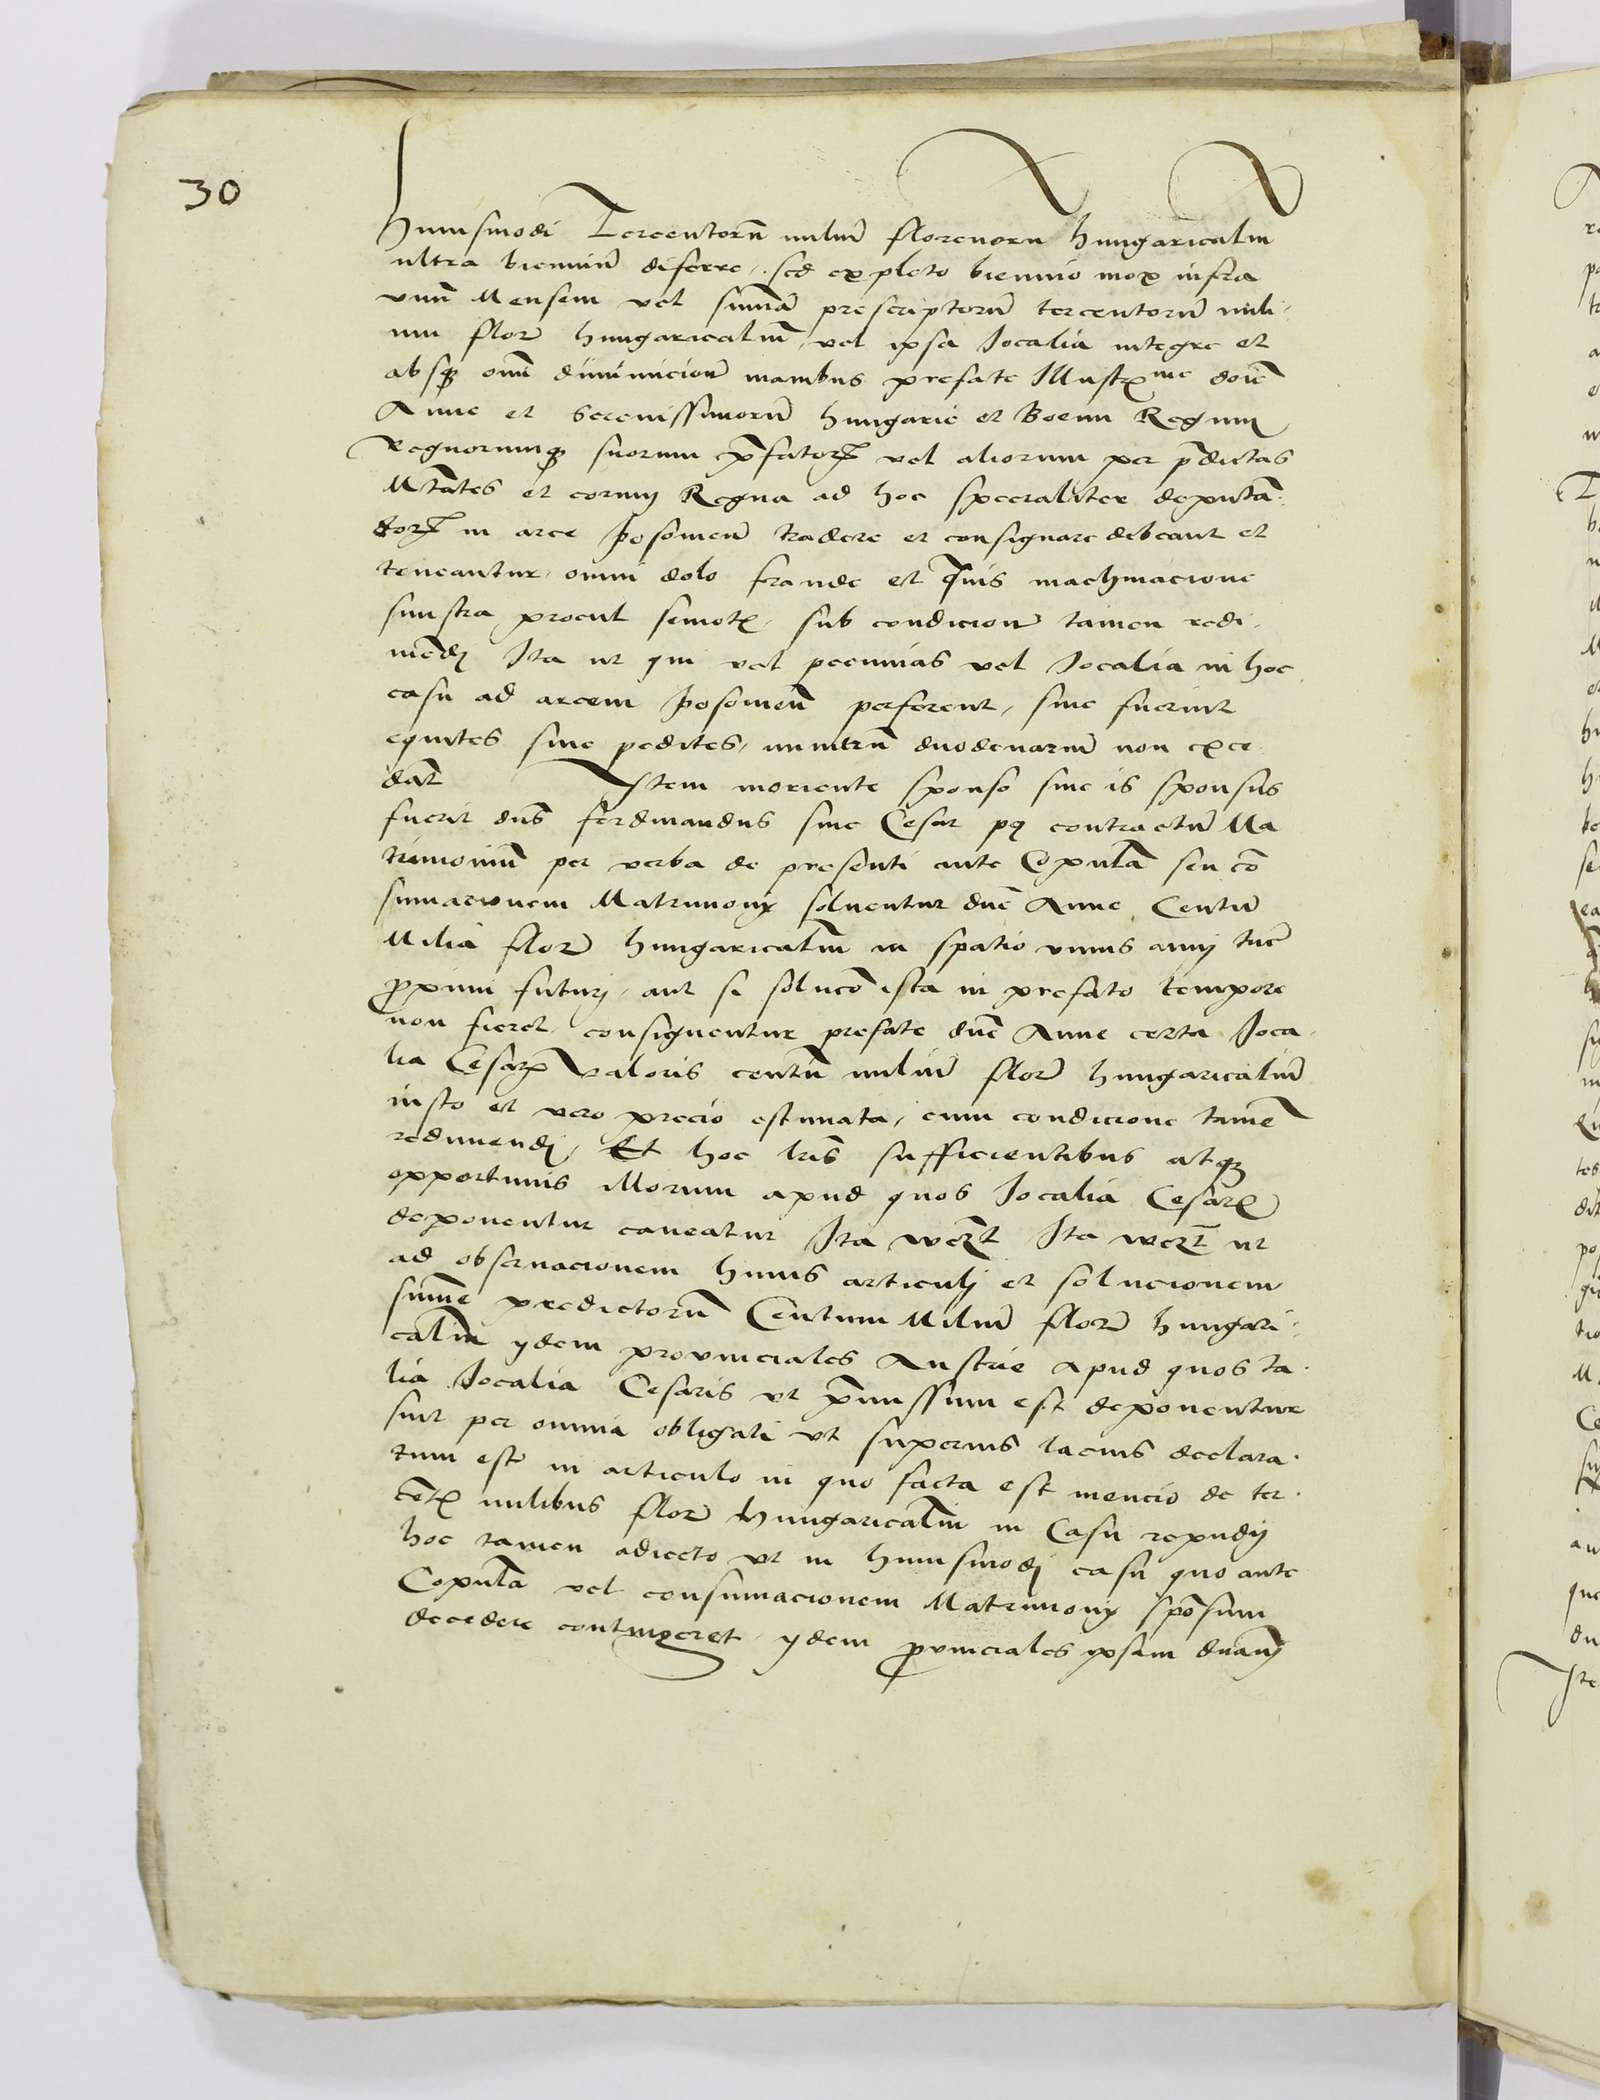 30
huiusmodi Tercentorū miliū florenorū hungaricaliū
ultra bienniū diferre, sed expleto biennio mox infra
vnū Mensem vel sum̄a prescriptorū tercentorū mili-
um flor̄ hungaricaliū, vel ipsa Jocalia integre et
absqꝫ omī diminucione manibus prefate Illustrme dn̄e
Anne et Serenissimorū hungarie et Boemi Regum
Regnorumqꝫ suorum p̄fatorꝝ vel aliorum per p̄dictas
Mtātes et eorum Regna ad hoc specialiter deputā-
torꝝ in arce Posonien̄ tradere et consignare debeant et
teneantur, omni dolo fraude et q̄uis machinacione
sinistra procul semotꝭ, sub condicione tamen redi-
mēdi Ita ut qui vel pecunias vel Jocalia in hoc
casu ad arcem Posonien̄ perferent, siue fuerint
equites siue pedites, numerū duodenarium non exce
dāt Item moriente sponso siue is sponsus
fuerit dn̄s ferdinandus siue Cesar pꝰ contractū Ma
trimoniū per verba de presenti ante Copulā seu cō
sumacionem Matrimonij soluentur dn̄e Anne Centū
Milia flor̄ hungaricaliū in spatio vnius anni tūc
proximi futuri, aut si solucō ista in prefato tempore
non fieret consignentur prefate dn̄e Anne certa Joca-
lia Cesarꝭ valoris centū miliū flor̄ hungaricaliū
iusto et vero precio estimata, cum condicione tamē
redimendi, Et hoc lr̄is sufficientibus atqꝫ
opportunis illorum apud quos Jocalia Cesarꝭ
deponentur caueatur Ita Ita ut
ad obseruacionem huius articuli et solucionem
sum̄e predictorū Centum Miliū flor̄ hungari-
caliū ydem prouinciales Austrie apud quos ta-
lia Jocalia Cesaris ut p̄missum est deponentur
sint per omnia obligati vt superius lacius declara-
tum est in articulo in quo facta est mencio de ter-
cētꝭ milibus flor̄ hungaricaliū in Casu repudij
hoc tamen adiecto ut in huiusmodi casu quo ante
Copulā vel consumacionem Matrimonij spōsum
decedere contingeret, ydem prouinciales ipsam dn̄am